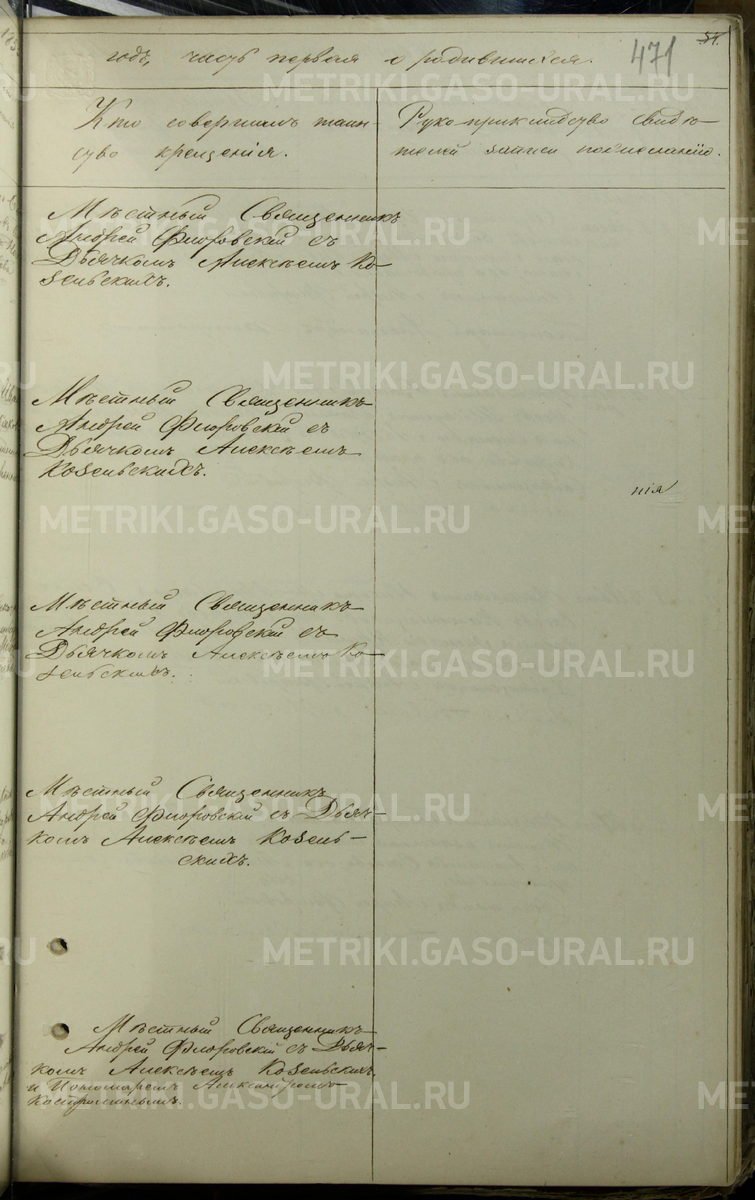 54.
471
годъ, часть первая о родившихся.
Кто совершалъ таин-
ство крещенія.
Рукоприкладство свидѣ-
телей записи по желанію.
Мѣстный Священникъ
Андрей Флоровскій съ
Дьячкомъ Алексѣемъ Ко-
зельскимъ.
Мѣстный Священникъ
Андрей Флоровскій съ
Дьячкомъ Алексѣемъ
Козельскихъ.
нія
Мѣстный Священникъ
Андрей Флоровскій съ
Дьячкомъ Алексѣемъ Ко-
зельскимъ.
Мѣстный Священникъ
Андрей Флоровскій съ Дьяч-
комъ Алексѣемъ Козель-
скихъ.
Мѣстный Священникъ
Андрей Флоровскій съ Дьяч-
комъ Алексѣемъ Козельскимъ
и Пономаремъ Александромъ
METRIKI.GASO-URAL.RU